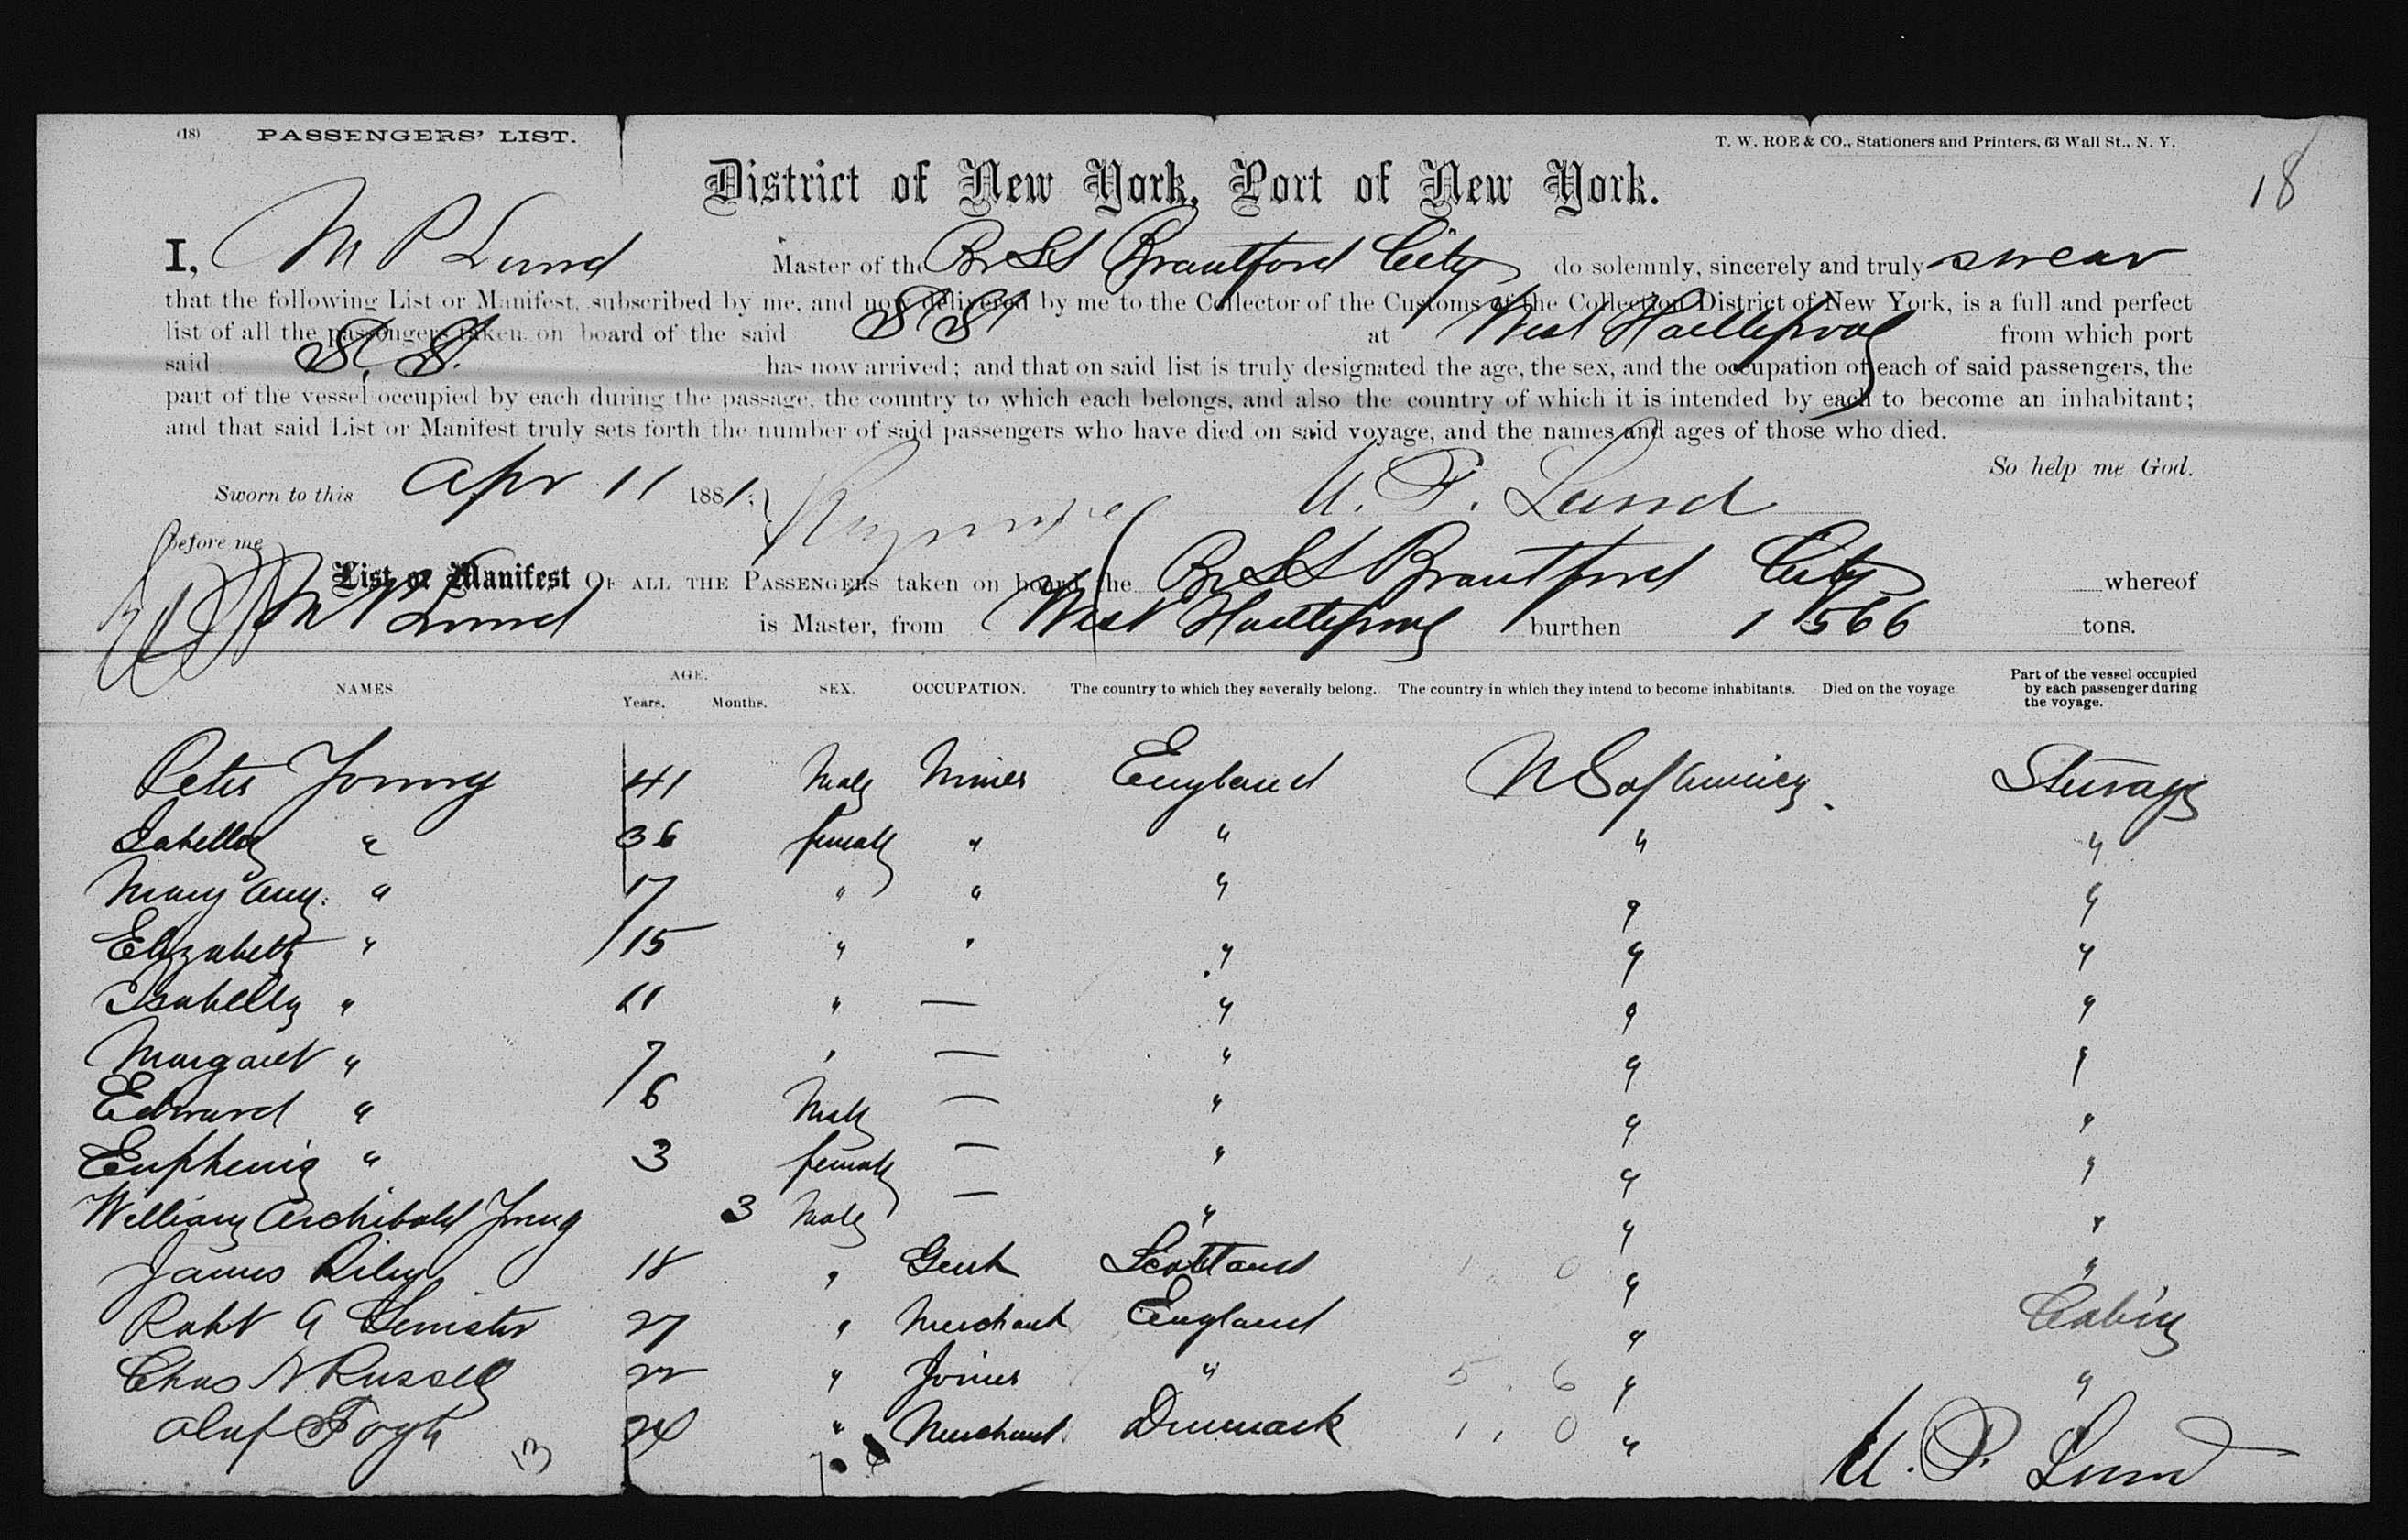 (18) PASSENGERS' LIST.
T. W. ROE & CO., Stationers and Printers, 63 Wall St., N. Y.
18
District of New York, Port of New York.
I, M P Lund Master of the Br SS Brantford City do solemnly, sincerely and truly swear
that the following List or Manifest, subscribed by me, and now delivered by me to the Collector of the Customs of the Collection District of New York, is a full and perfect
list of all the passengers taken on board of the said SS at West Hartlepool from which port
said S. S. has now arrived; and that on said list is truly designated the age, the sex, and the occupation of each of said passengers, the
part of the vessel occupied by each during the passage, the country to which each belongs, and also the country of which it is intended by each to become an inhabitant;
and that said List or Manifest truly sets forth the number of said passengers who have died on said voyage, and the names and ages of those who died.
So help me God.
Sworn to this Apr 11 1881. M. P. Lund
before me
List or Manifest OF ALL THE PASSENGERS taken on board the Br SS Brantford City whereof
M P Lund is Master, from West Hartlepool burthen 1566 tons.
NAMES AGE. Years. Months. SEX. OCCUPATION. The country to which they severally belong. The country in which they intend to become inhabitants. Died on the voyage Part of the vessel occupied by each passenger during the voyage.
Peter Young 41 Male Miner England U S of America Steerage
Isabella " 36 female " " " "
Mary Ann " 17 " " " " "
Elizabeth " 15 " " " " "
Isabella " 11 " — " " "
Margaret " 7 " — " " "
Edward " 6 Male — " " "
Euphemia " 3 female — " " "
William Archibald Young 3 Male — " " "
James Riley 18 " Gent Scotland " "
Robt A 27 " Merchant England " Cabin
Chas N Russell 22 " Joiner " " "
Oluf Fogh 24 " Merchant Denmark "
13
M. P. Lund